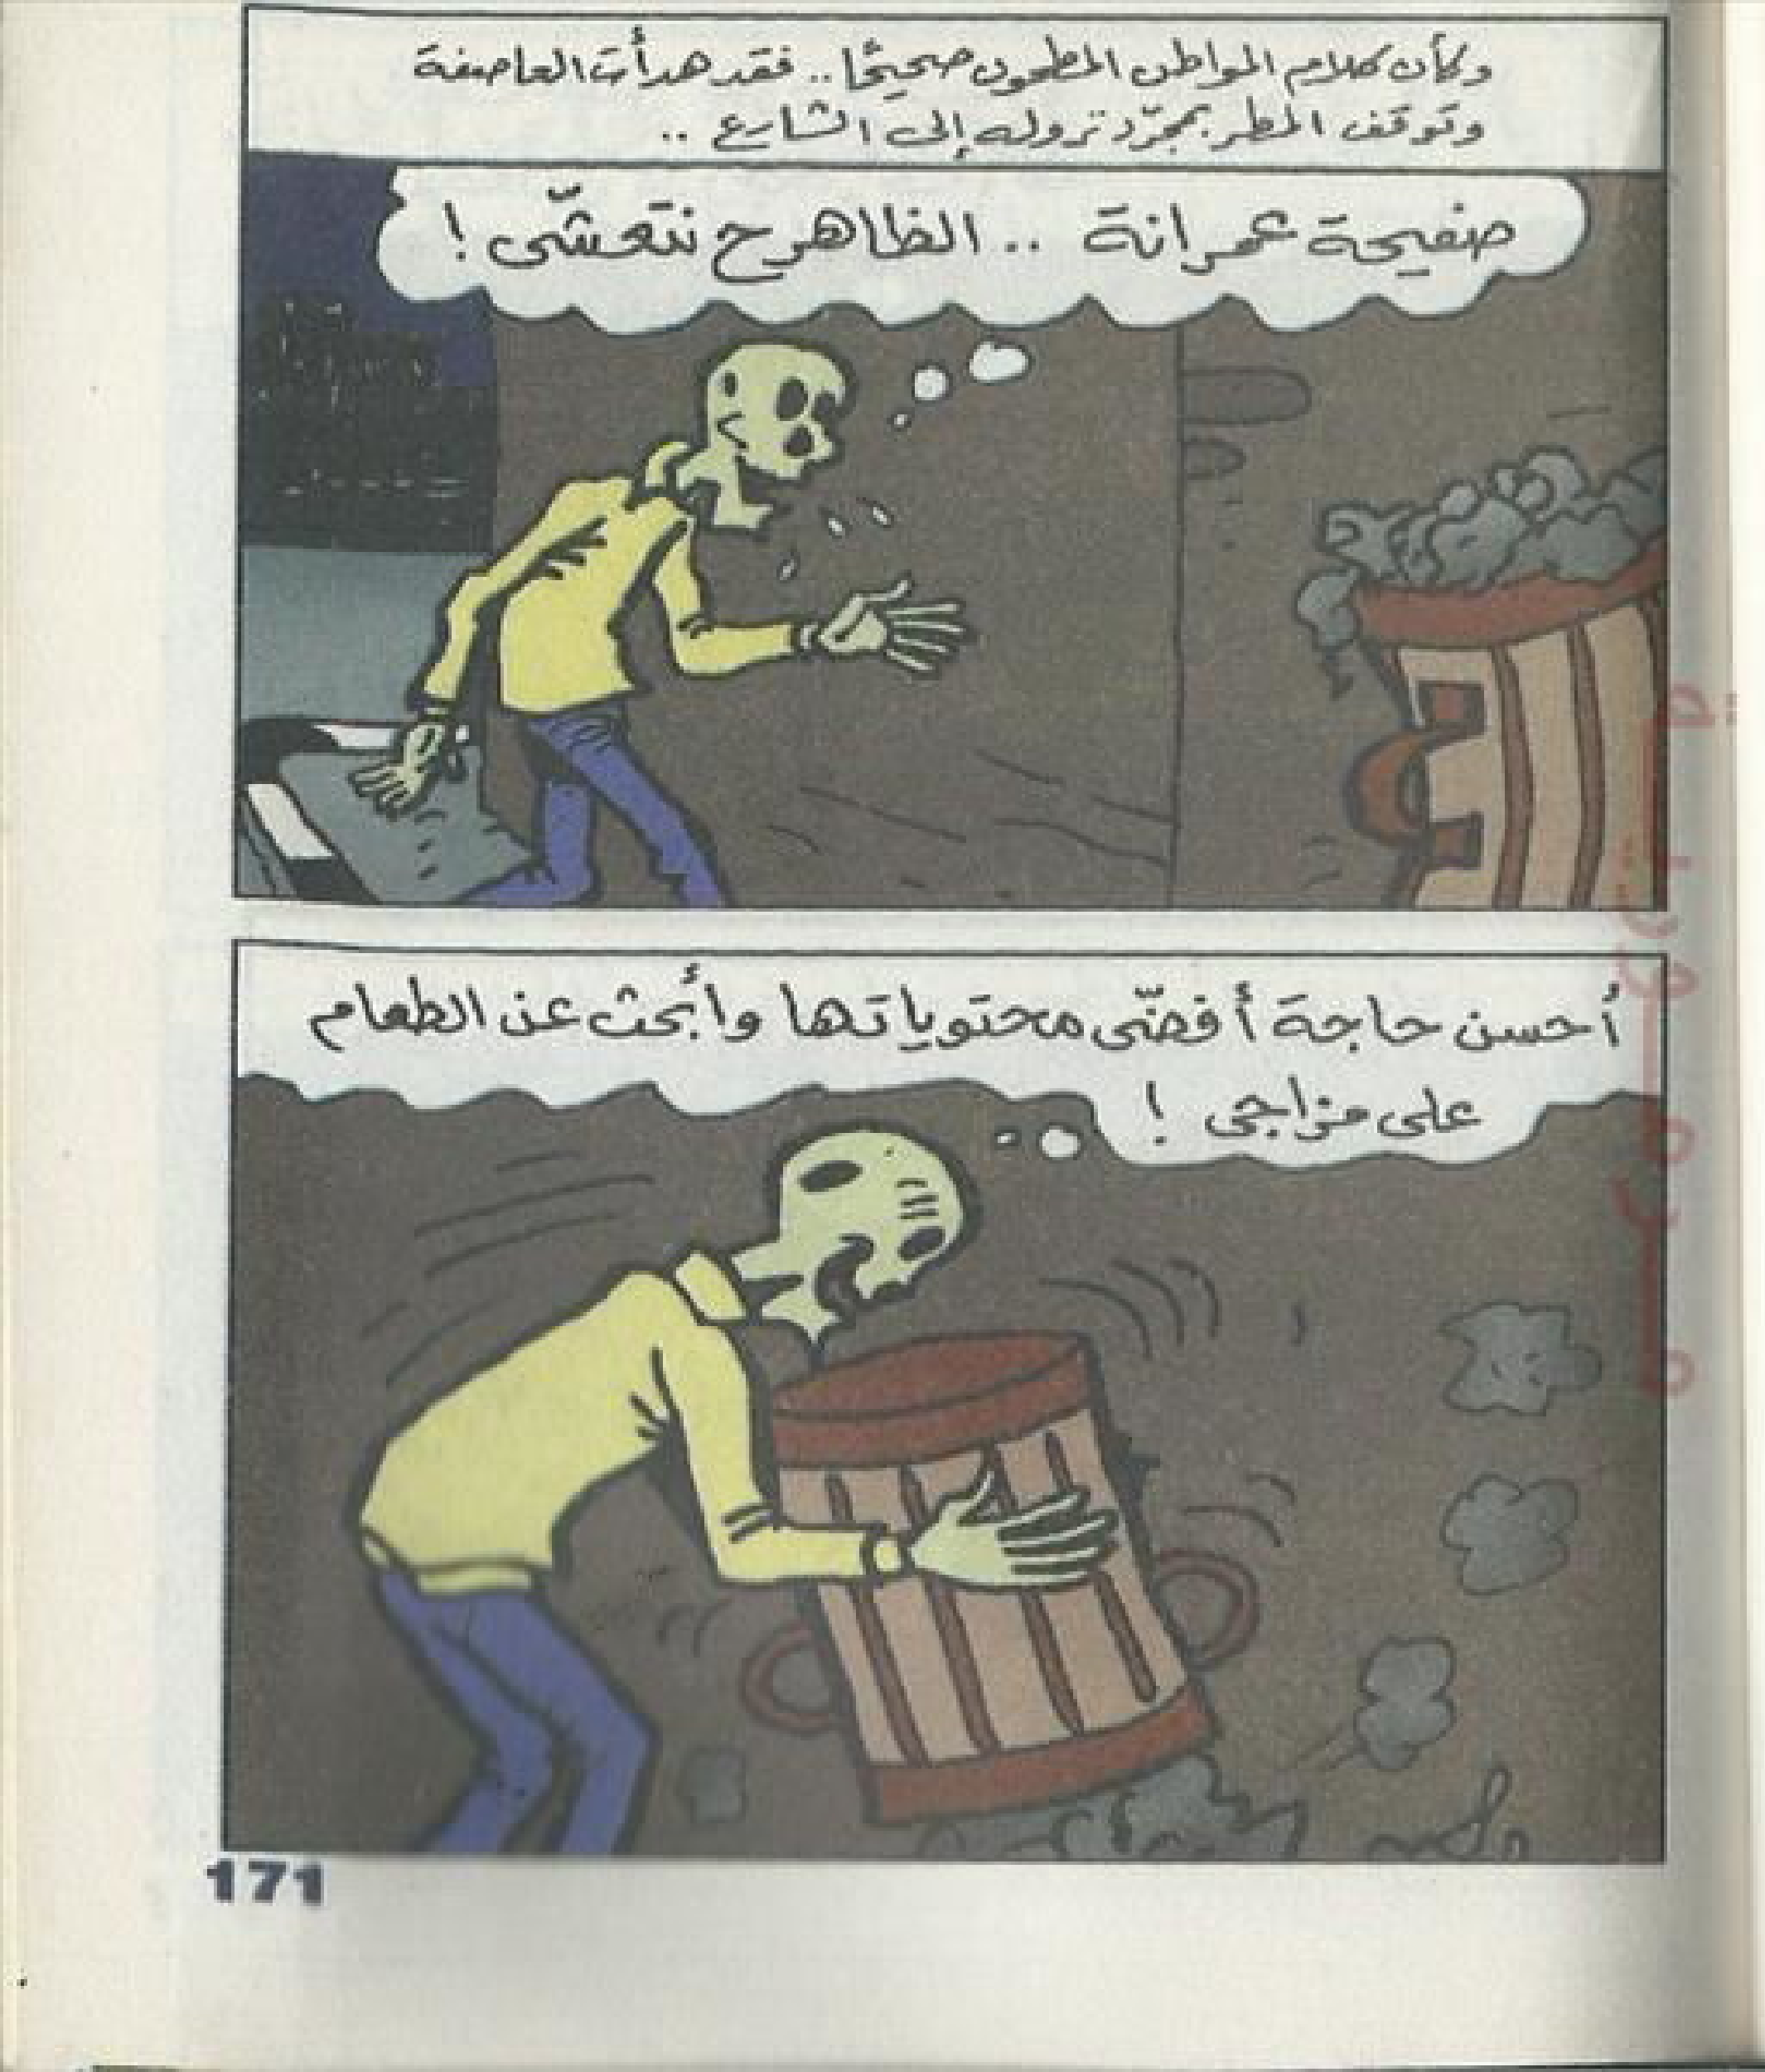 وكأن كلام المواطن المطحون صحيحًا .. فقد هدأت العاصفة
وتوقف المطر بمجرّد نزوله إلى الشارع ..
صفيحة عمرانة .. الظاهر ح نتعشّى !
أحسن حاجة أفضّى محتوياتها وأبحث عن الطعام
على مزاجى !
171